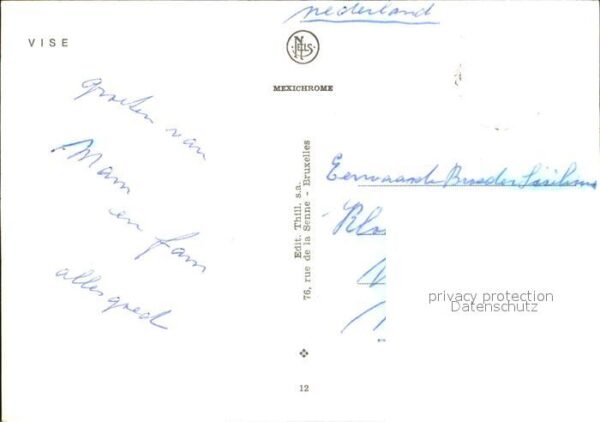 nederland
VISE
NELS
MEXICHROME
groeten van
Mam
en fam
alles goed
Edit. Thill. s.a.
76, rue de la Senne - Bruxelles
Eerwaarde Broeder
Klo
privacy protection
Datenschutz
12